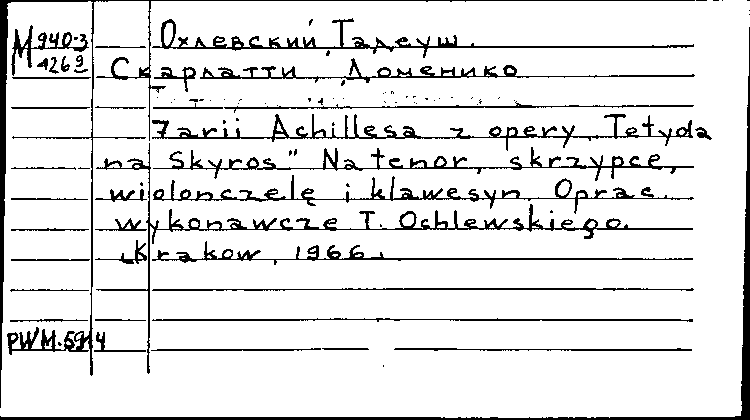 М 940-3
426 9
Охлевский, Тадеуш.
Скарлатти, Доменико
7 arii Achillesa z opery „Tetyda
na Skyros" Na tenor, skrzypce,
wiolonczelę i klawesyn. Oprac.
wykonawcze T. Ochlewskiego.
Krakow, 1966.
PWM-5914